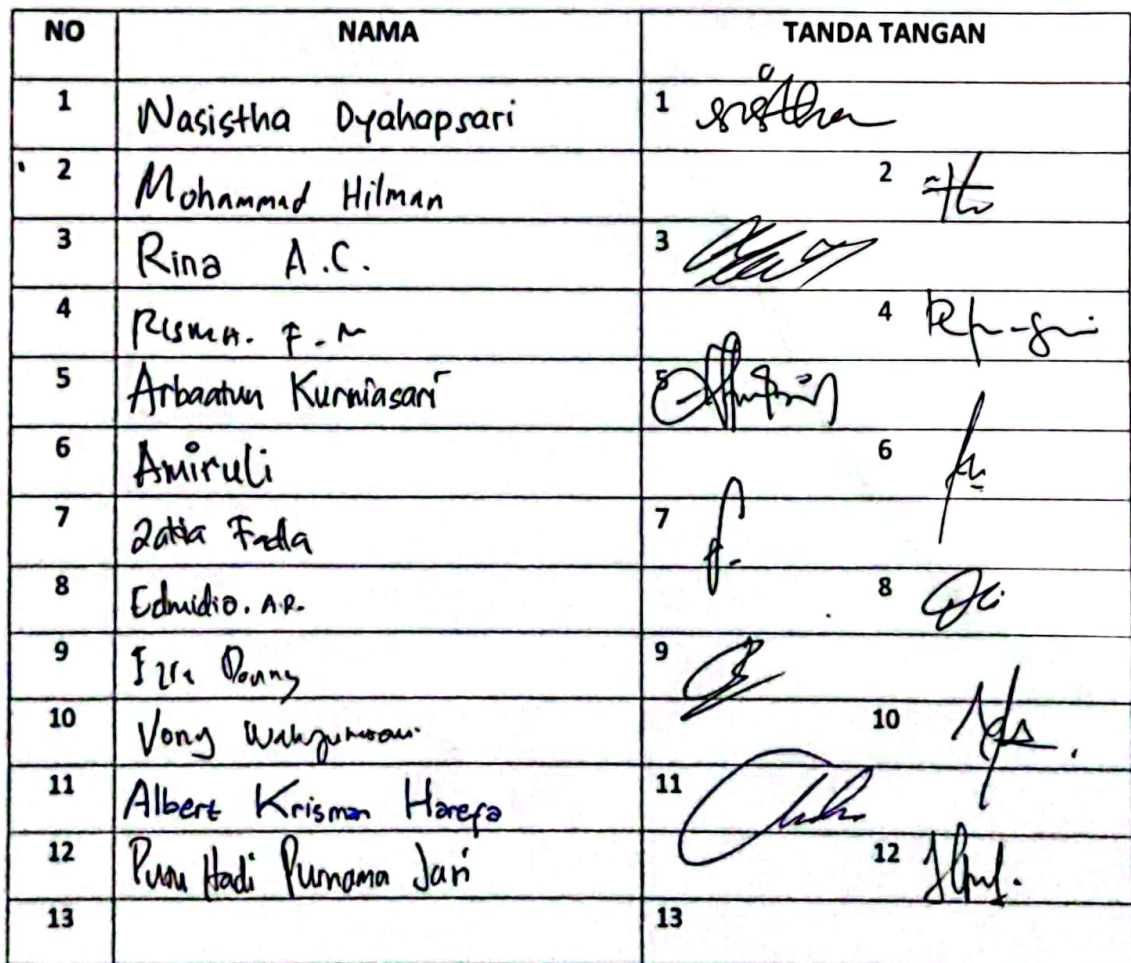 NO NAMA TANDA TANGAN
1 Wasistha Dyahapsari 1
2 Mohammad Hilman 2
3 Rina A.C. 3
4 Risma. F. M 4
5 Arbaatun Kurniasari 5
6 Amiruli 6
7 Fadla 7
8 Edmidio. A.R. 8
9 9
10 Vony 10
11 Albert Krisman Harefa 11
12 Hadi Purnama Sari 12
13 13